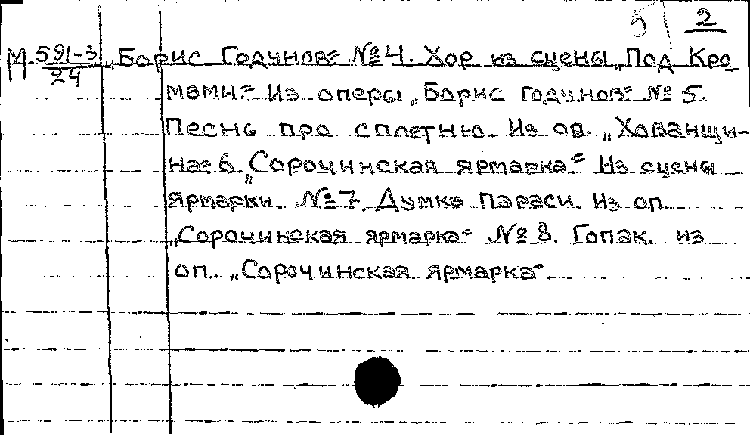 5 2
М 591-3 „Борис Годунов“ №4. Хор из сцены „Под Кро
24
мами“ Из оперы „Борис Годунов“ № 5.
Песнь про сплетню. Из оп. „Хованщи-
на“ 6. „Сорочинская ярмарка“ Из сцены
ярмарки. №7. Думка Параси. Из оп.
„Сорочинская ярмарка“ № 8. Гопак. из
оп. „Сорочинская ярмарка“